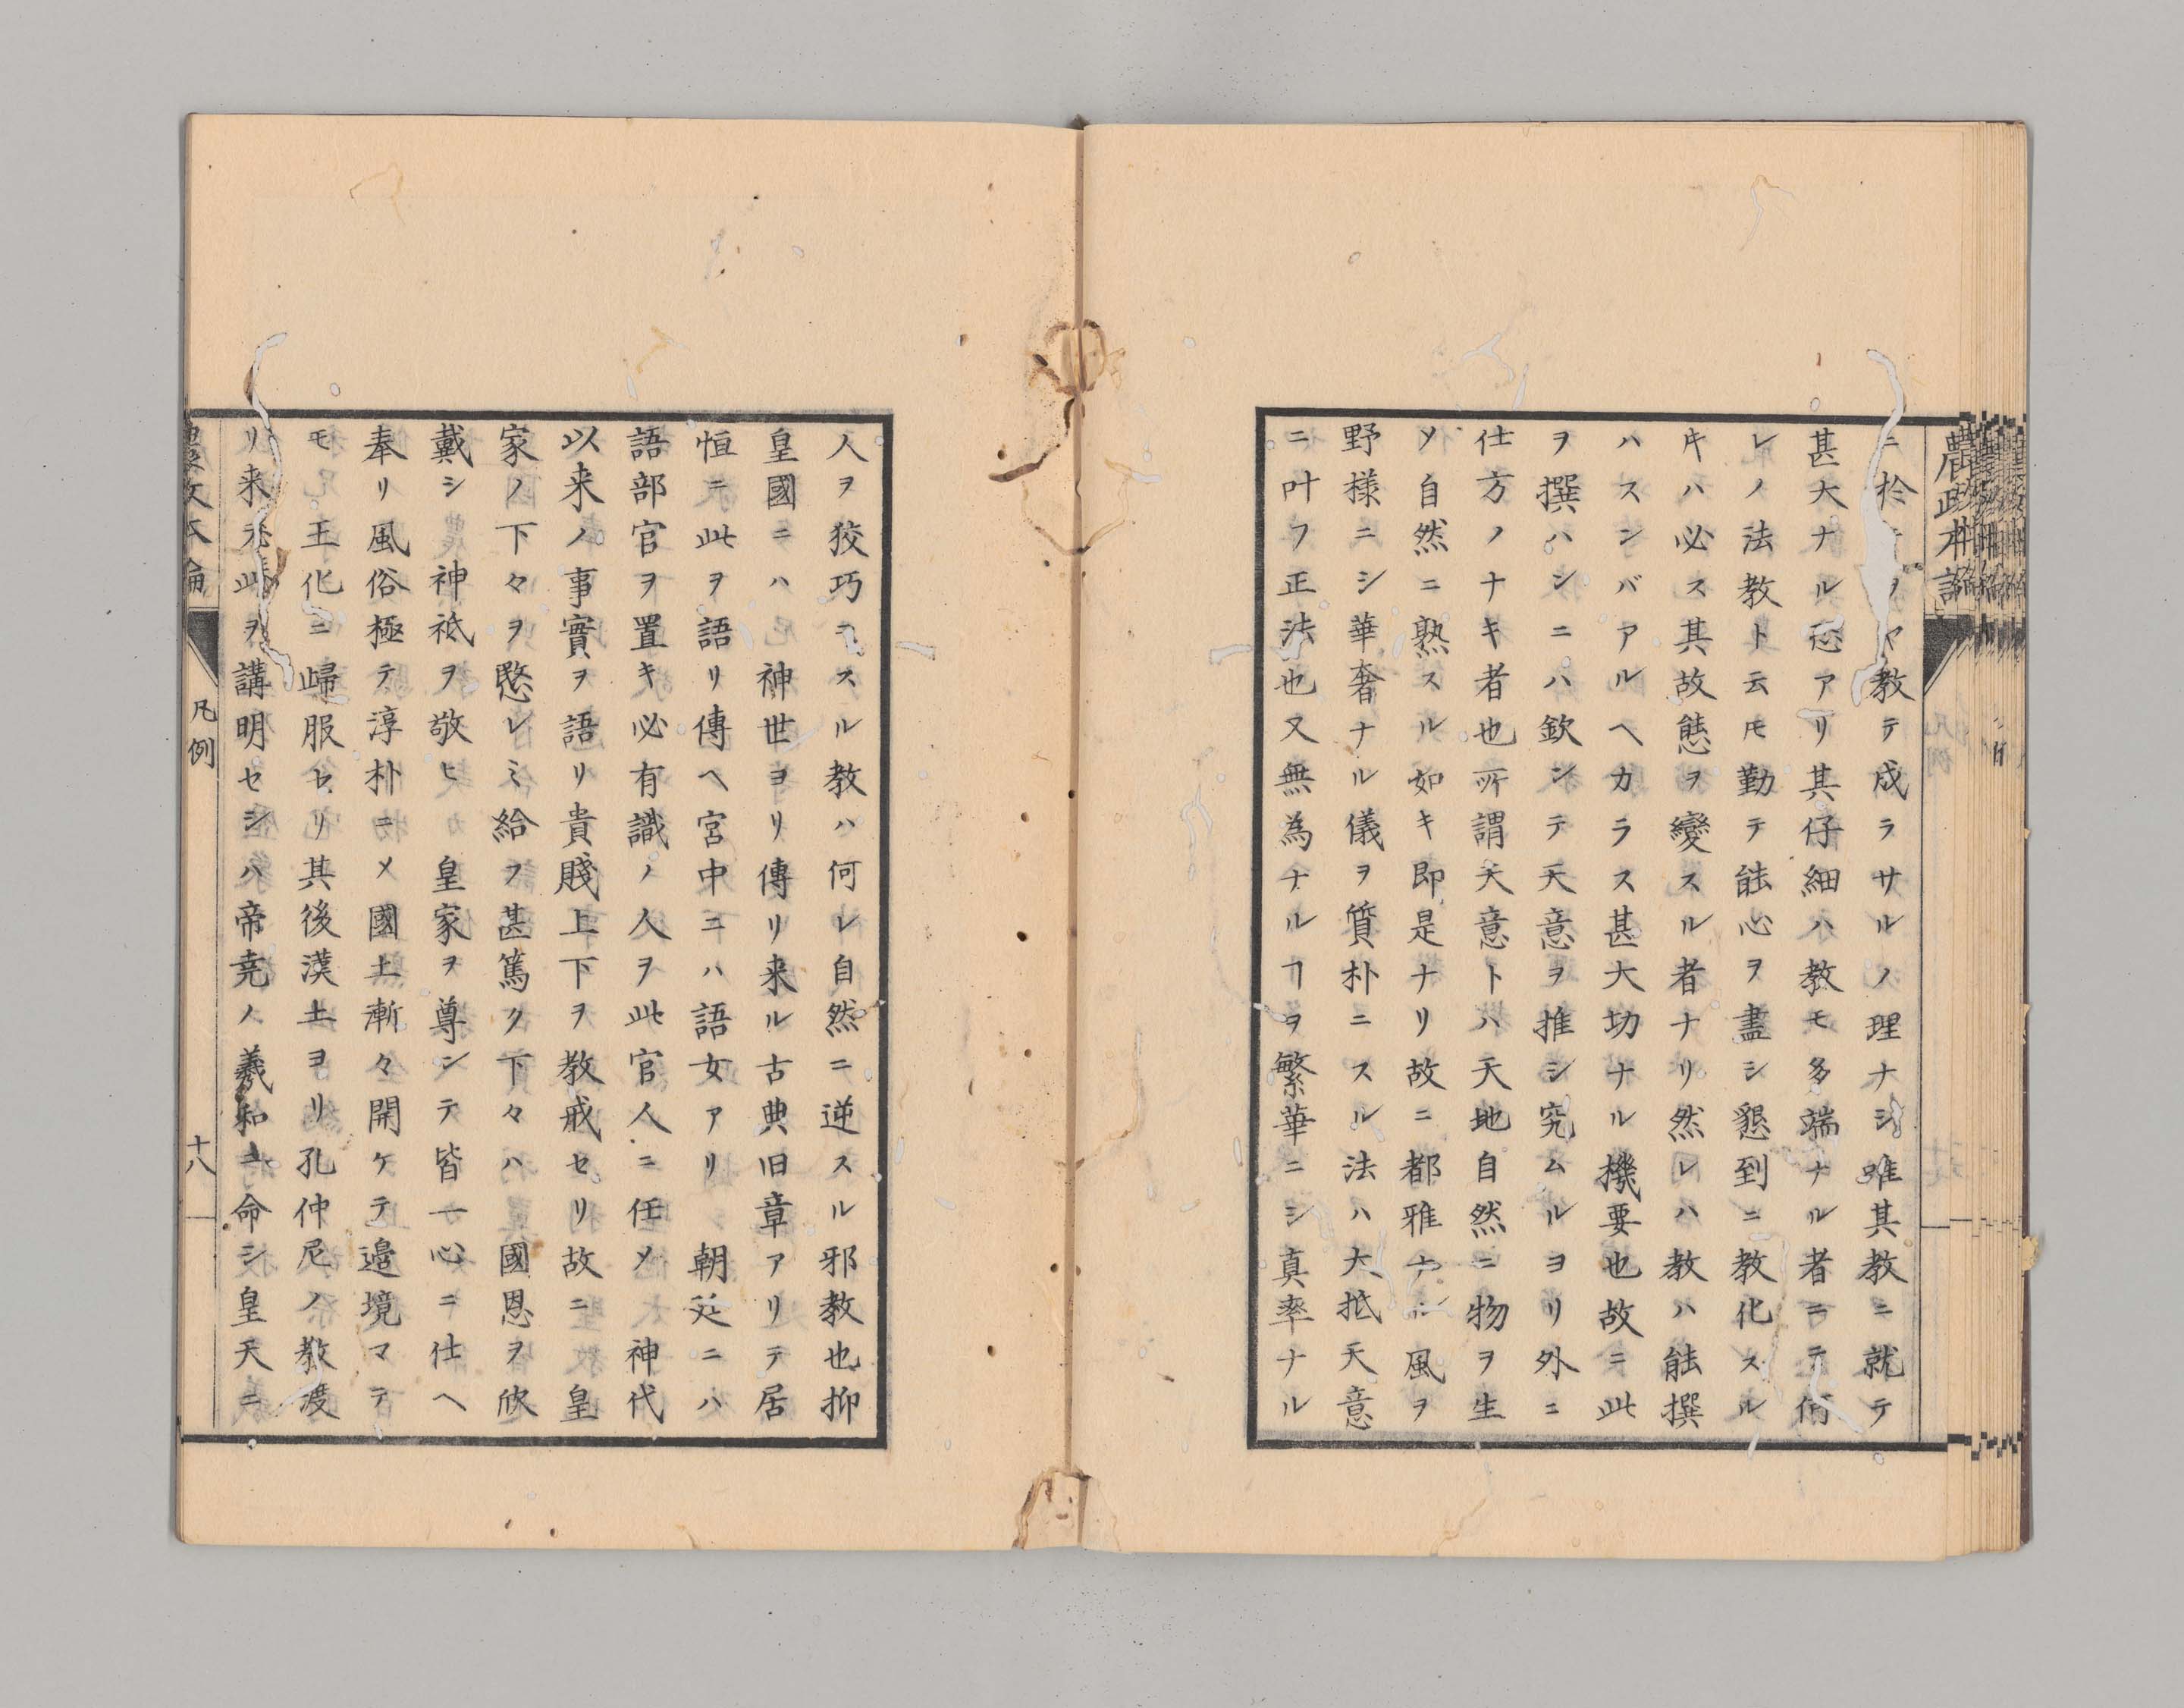 農政本論
ニ於テヲヤ教テ成ラサルノ理ナシ唯其教ニ就テ
甚大ナル愆アリ其仔細ハ教モ多端ナル者ニテ何
レノ法教ト云モ勤テ能心ヲ盡シ懇到ニ教化スル
キハ必ス其故態ヲ變スル者ナリ然レハ教ハ能撰
ハスンバアルヘカラス甚大切ナル機要也故ニ此
ヲ撰ハンニハ欽シテ天意ヲ推シ究ムルヨリ外ニ
仕方ノナキ者也所謂天意トハ天地自然ニ物ヲ生
ソ自然ニ熟スル如キ即是ナリ故ニ都雅ナル風ヲ
野様ニシ華奢ナル儀ヲ質朴ニスル法ハ大抵天意
ニ叶フ正法也又無為ナルヿヲ繁華ニシ真率ナル
人ヲ狡巧ニスル教ハ何レ自然ニ逆スル邪教也抑
皇國ニハ 神世ヨリ傳リ来ル古典旧章アリテ居
恒ニ此ヲ語リ傳ヘ宮中ニハ語女アリ 朝廷ニハ
語部官ヲ置キ必有識ノ人ヲ此官人ニ任メ 神代
以来ノ事實ヲ語リ貴賤上下ヲ教戒セリ故ニ 皇
家ノ下々ヲ愍レミ給フ甚篤ク下々ハ 國恩ヲ欣
戴シ 神祇ヲ敬ヒ 皇家ヲ尊シテ皆一心ニ仕ヘ
奉リ風俗極テ淳朴ニメ國土漸々開ケテ邉境マテ
モ王化ニ歸服セリ其後漢土ヨリ孔仲尼ノ教渡
リ来 此ヲ講明セシハ帝堯ノ羲和ニ命シ皇天ニ
凡例
十八